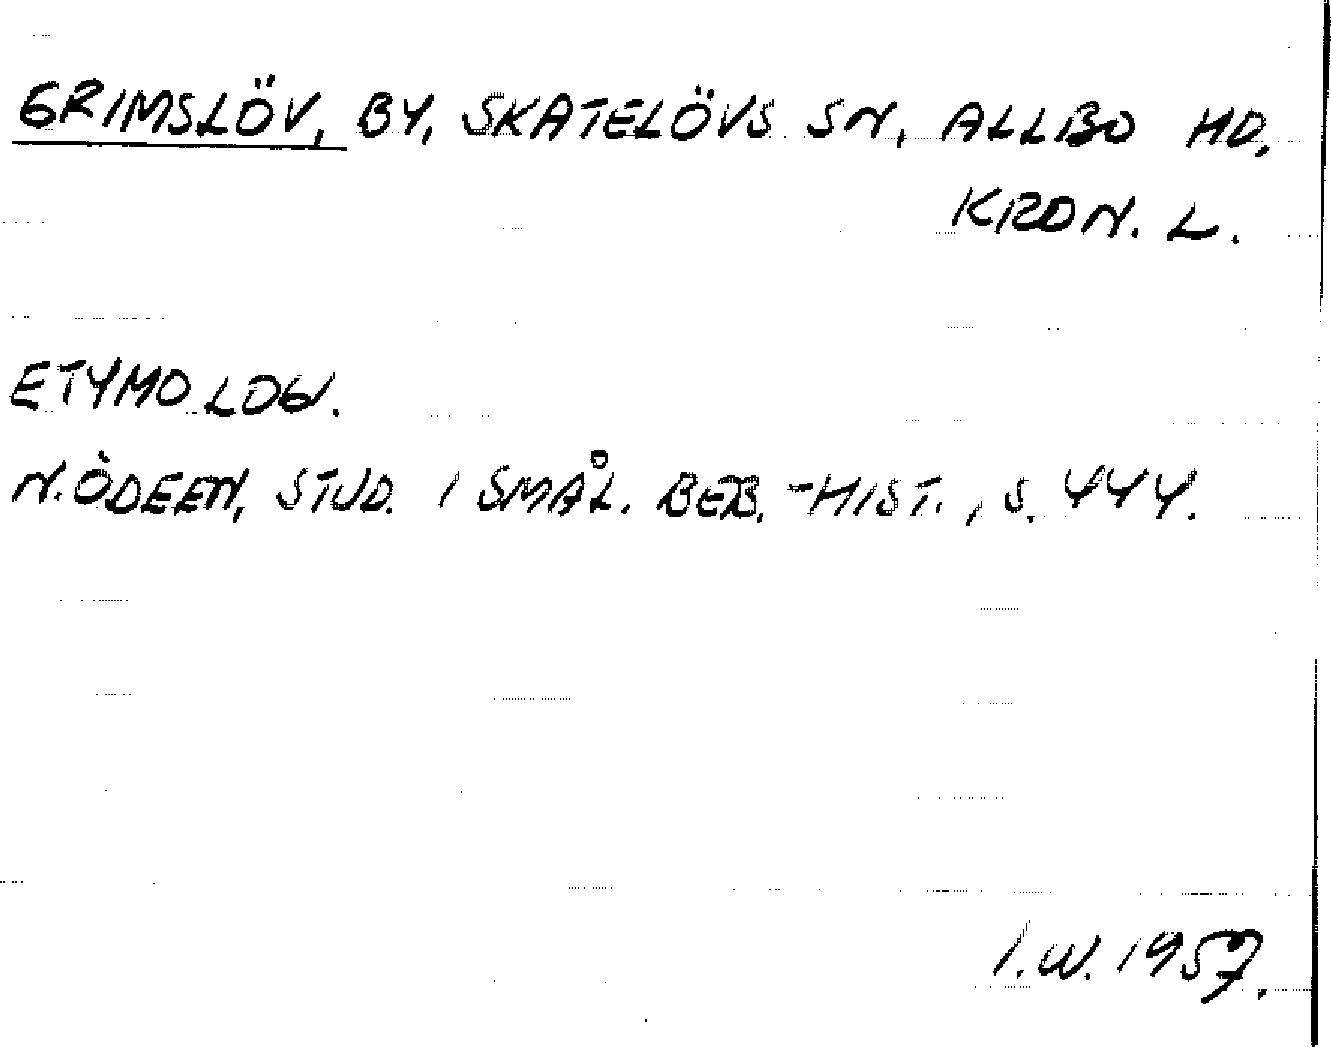 GRIMSLÖV, BY, SKATELÖVS SN, ALLBO HD,
KRON. L.
ETYMOLOG.
N. ÖDEEN, STUD. I SMÅL. BEB.-HIST., S. 444.
I.W. 1957.